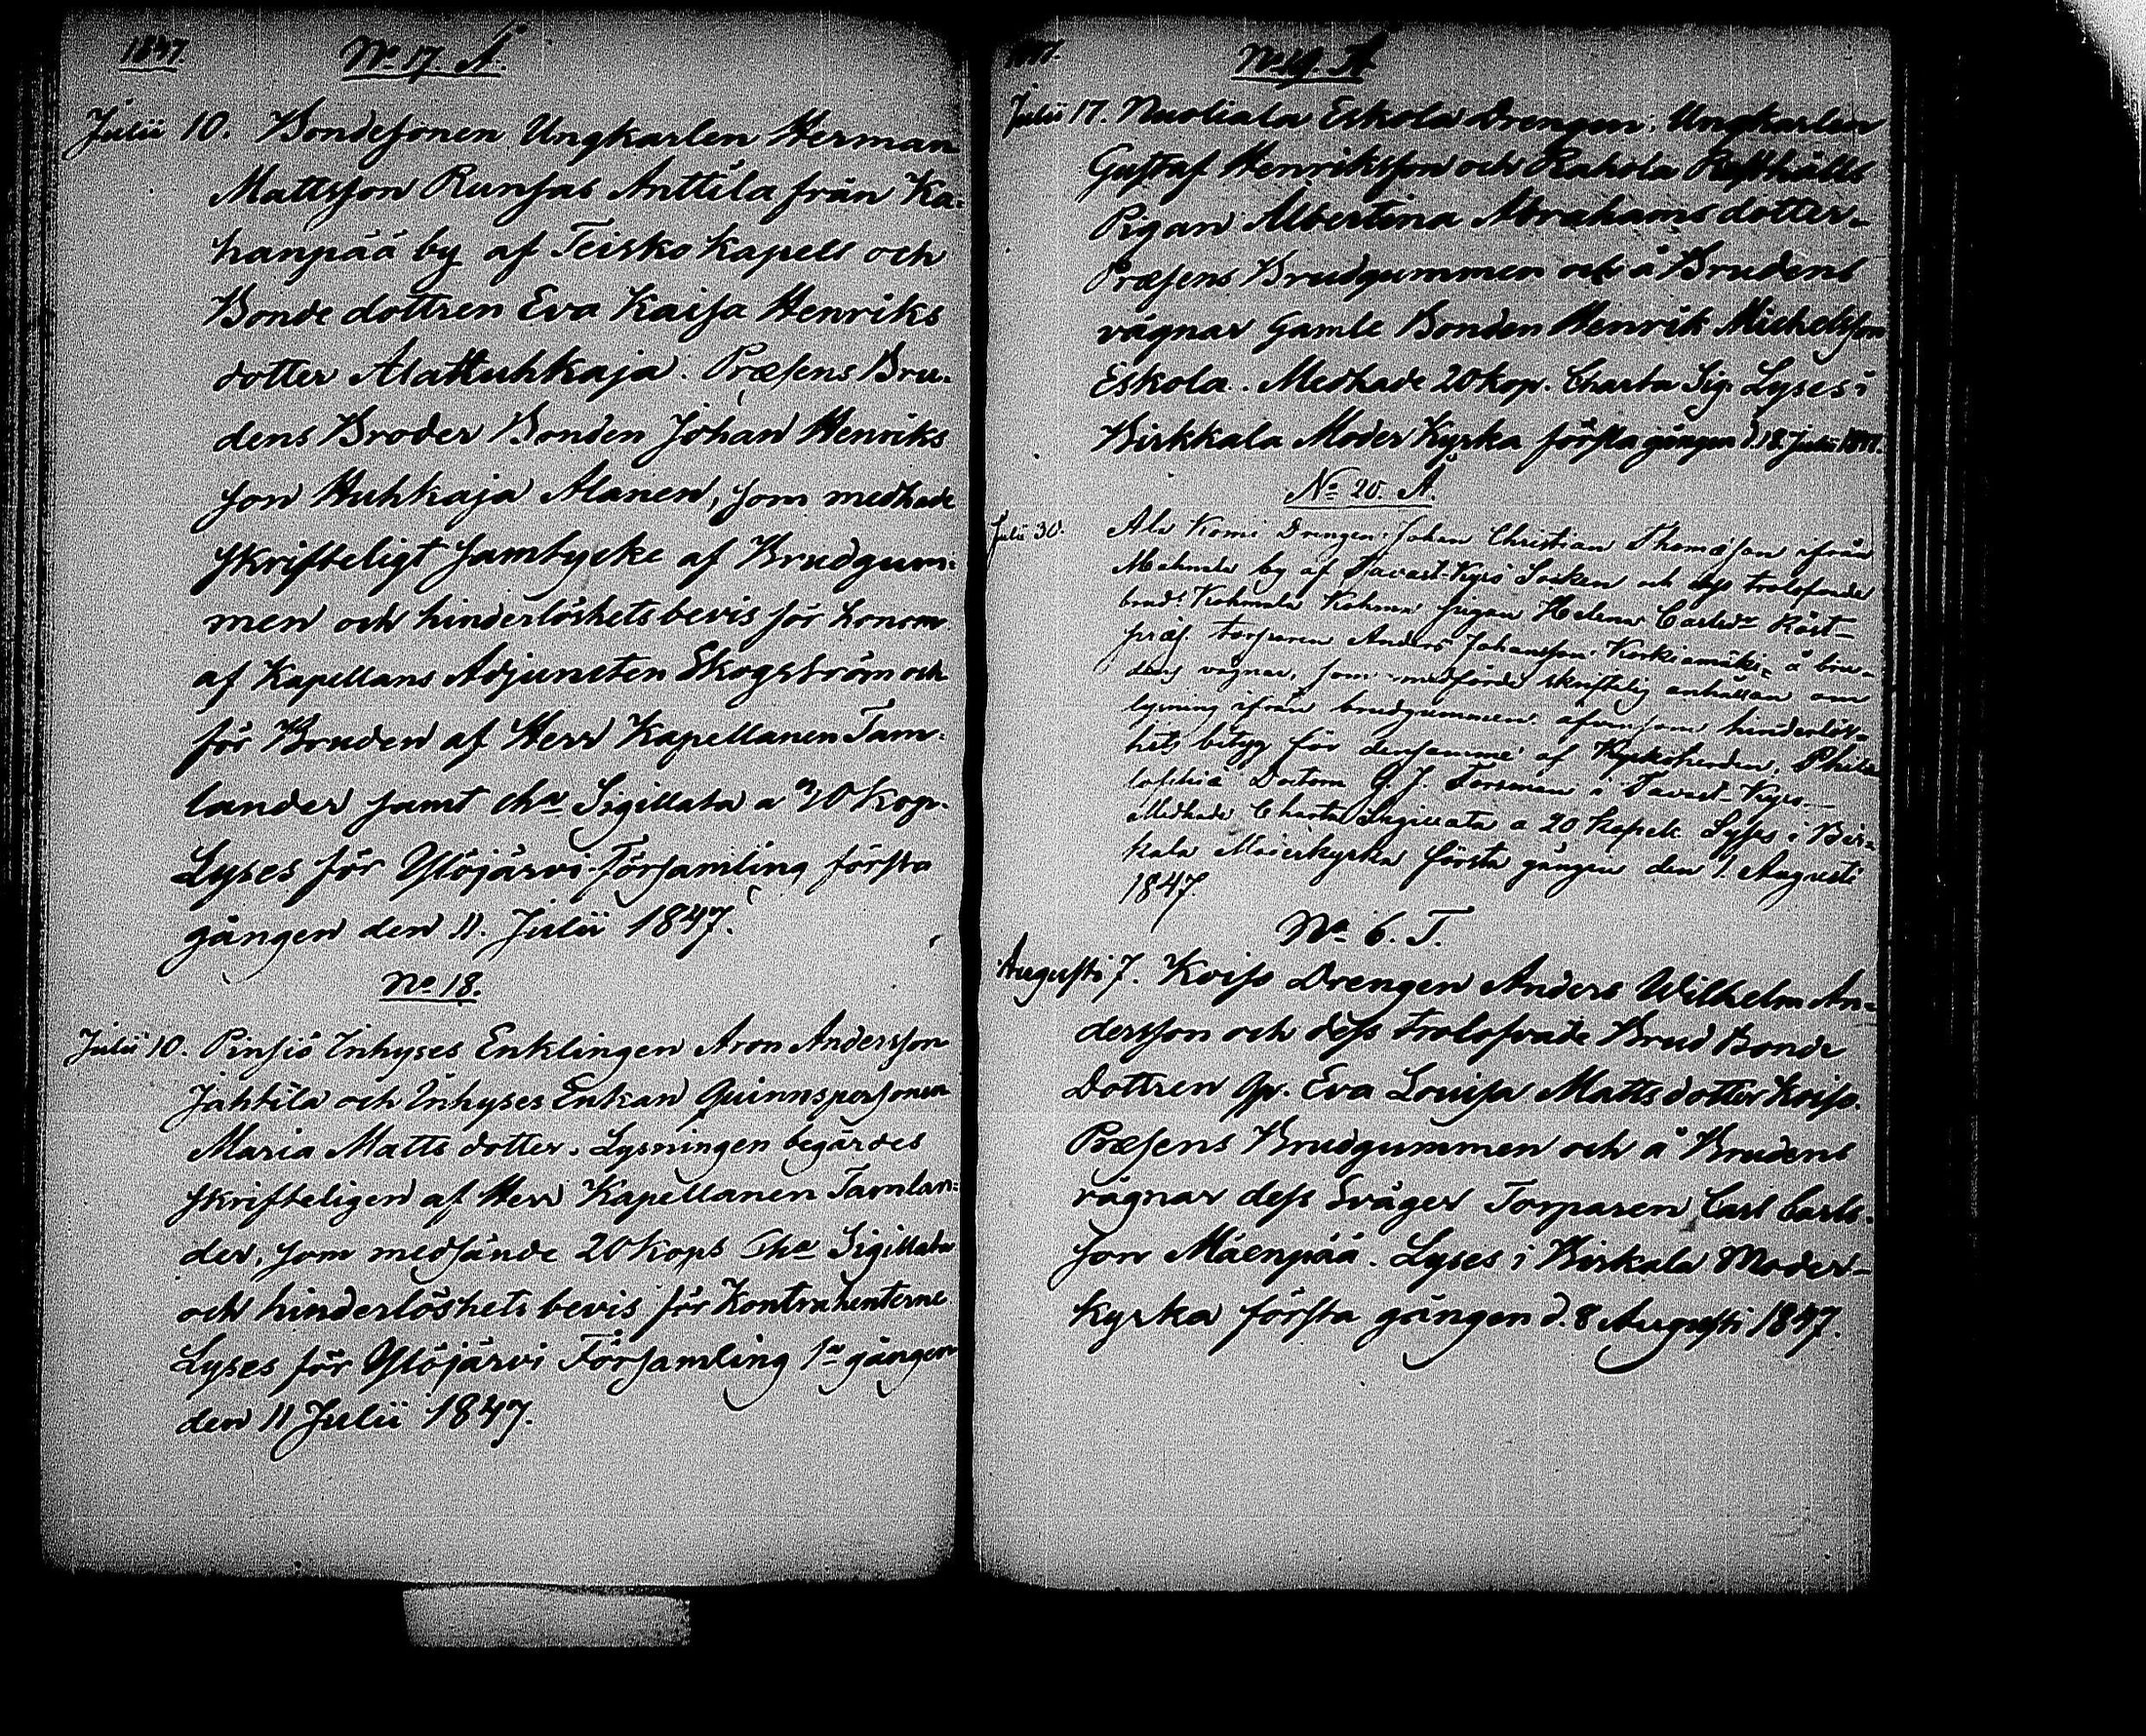 1847.
No 17. Å.
Julii 10. Bondesonen Ungkarlen Herman
Mattsson Runsas Anttila från Ka-
hanpää by af Teisko Kapell och
Bonde dottren Eva Kaisa Henriks
dotter Ala Huhkaja. Præsens Bru-
dens Broder Bonden Johan Henriks
son Huhkaja Alanen, som medhade
skrifteligt samtycke af Brudgum-
men och hinderlöshets bevis för honom
af Kapellans Adjuncten Skogström och
för Bruden af Herr Kapellanen Tam-
lander samt cha Sigillata a 20 Kop.
Lyses för Ylöjärvi Församling första
gången den 11. Julii 1847.
No 18.
Julii 10. Pinsiö Inhyses Enklingen Aron Andersson
Jahtila och Inhyses Enkan Qvinnspersonen
Maria Matts dotter. Lysningen begärdes
skrifteligen af Herr Kapellanen Tamlan-
der, som medsände 20 Kops Cha Sigillata
och hinderlöshets bevis för Kontrahenterne.
Lyses för Ylöjärvi Församling 1a gången
den 11 Julii 1847.
1847.
No 19. Å
Julii 17. Nuoliala Eskola Drengen, Ungkarlen
Gustaf Henriksson och Rahola Rusthålls
Pigan Albertina Abrahams dotter.
Præsens Brudgummen och å Brudens
vägnar gamle Bonden Henrik Michelsson
Eskola. Medhade 20 kop. Charta Sig. Lyses i
Birkkala Moder Kyrka första gången d. 18 Julii 1847.
No 20. Å.
Julii 30. Ala Komi Drengen Johan Christian Thomasson ifrån
by af Tavast-Kyro Socken och dess trolofvade
brud Kohmala pigan Helena Carlsdr
præs. torparen Anders Johansson Korkiamäki å bru-
dens vägnar, som medförde skriftelig anhållan om
lysning ifrån brudgummen äfvensom hinderlös-
hets betyg för densamme af Kyrkoherden, Philo
sophiæ Doctorn G. J. Forsman i Tavast-Kyro.
Medhade Charta Sigillata a 20 Kopek. Lyses i Bir-
kala Moderkyrka första gången den 1. Augusti
1847.
No 6. T.
Augusti 7. Koiso Drengen Anders Wilhelm An-
dersson och dess trolofvade Brud Bonde
Dottren Eva Lovisa Matts dotter Koiso.
Præsens Brudgummen och å Brudens
vägnar dess Svåger Torparen Carl Carls-
son Mäenpää. Lyses i Birkala Moder-
kyrka första gången d. 8 Augusti 1847.